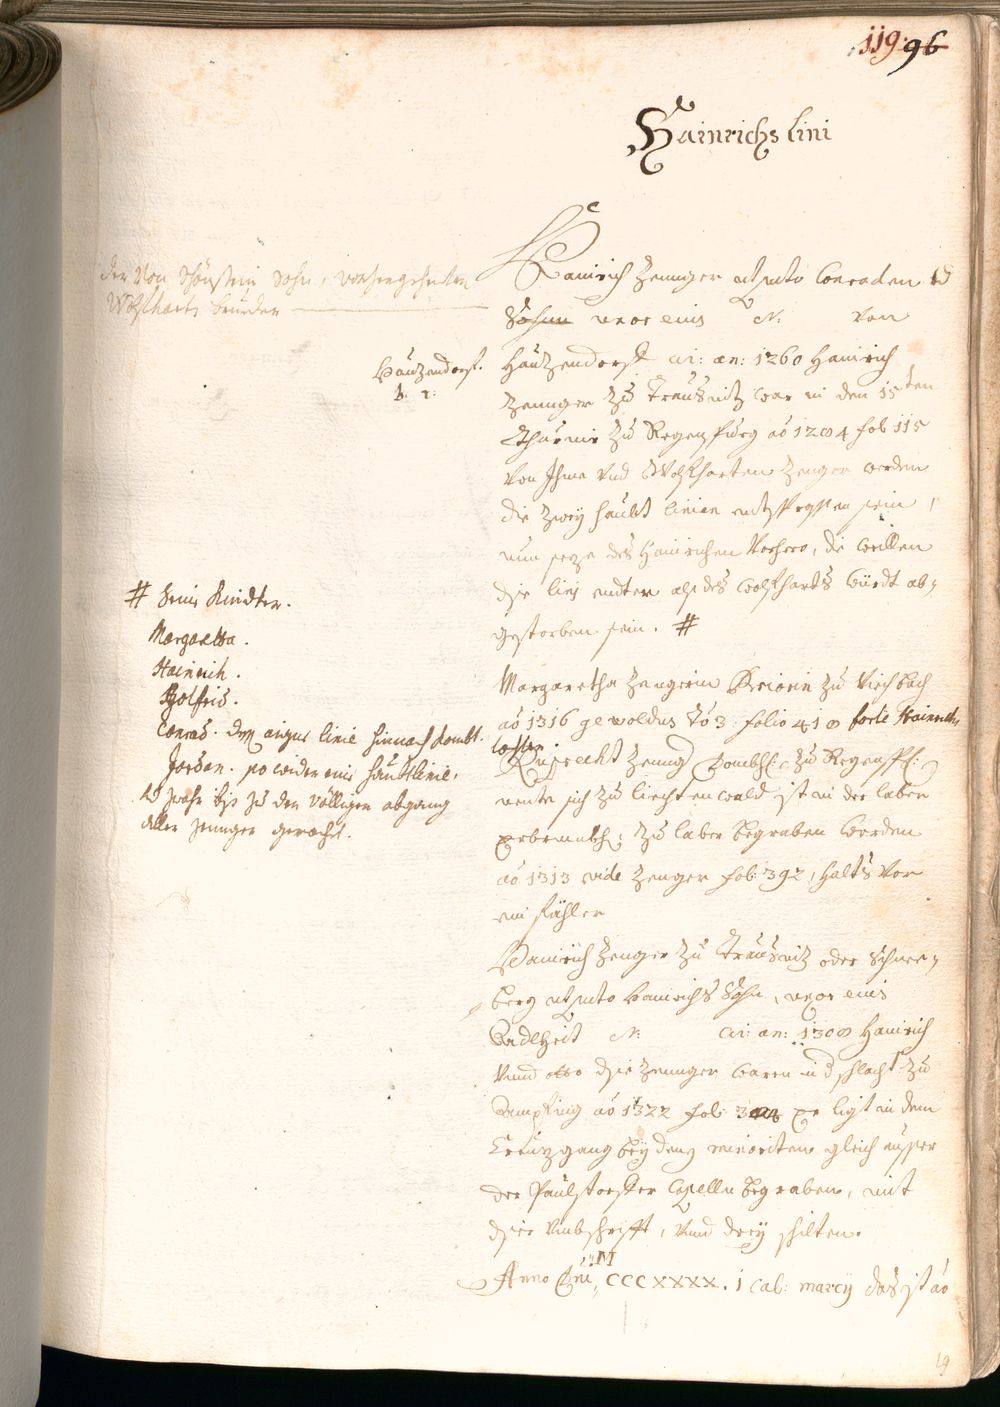 119. 96
Hainrichs Lini
der von Schönstein Sohn, vorhergehenten
Wolfharts brueder
Hainrich Zennger ut puto Conraden
Sohnn uxor eius N: von
Hautzendorff.
Hautzendorff ai: an: 1260 Hainrich
Zennger zu Trausnitz war in den 15ten
Thurnir zu Regenspurg ao 1284 fol 115
von Ihme und Wolfharten Zenger werden
die zwey haubt linien entsprossen sein,
nun seze des Hainrichen Vorhero, die weillen
dise lini endter als des Wolfharts würdt ab-
gestorben sein. #
# Seine Kindter.
Margaretha.
Hainrich.
Wolfrid.
Conrad. dessen aigne linie hernach kombt.
Jordan. so wider eine haubtlinie,
so gewehrt biss zu den völligen abgang
aller Zennger gemacht.
Margaretha Zengerin Priorin zu Viechbach
ao 1316 gewoldus To 3 folio 418 forte Hainrichs
dochter.
Ruprecht Zenng Dombh: zu Regensp:
nente sich zu liechtenwald ist in der laber
zu laber begraben worden
ao 1313 vide Zenger fol: 392, halts vor
ein fähler
Hainrich Zenger zu Trausnitz oder Schnee-
berg ut puto Hainrichs Sohn, uxor eius
Adlheit N: ai: an: 1308 Hainrich
unnd otto dise Zennger waren in d schlacht zu
Ampfing ao 1322 fol: er ligt in dem
Creuzgang bey denen minoriten gleich ausser
der Paulstorffer Capelln begraben, mit
diser Umbschrifft, unnd drey schilten.
Anno Dni, M CCCXXXX. i cal: marcij das ist ao
19